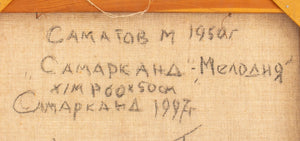 САМАТОВ М 1950г
„САМАРКАНД" - „Мелодия"
Х/М Р 60×50см
САМАРКАНД 1997г